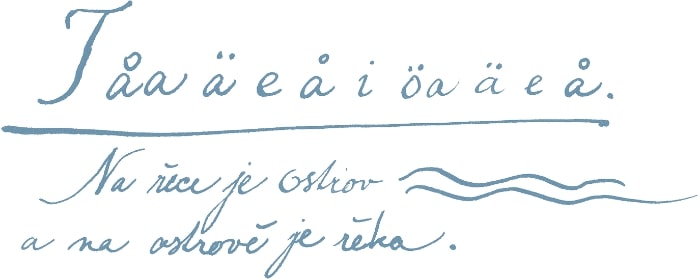 I åa ä e å i öa ä e å.
Na řece je ostrov
a na ostrově je řeka.